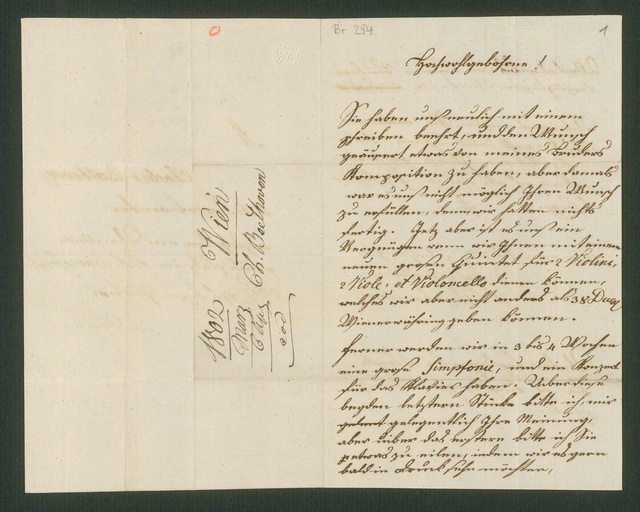 Br 294
1
1802 Wien
März
eod
Ch. Beethoven
Hochwohlgebohrne!
Sie haben uns neulich mit einem
schreiben beehrt, und den Wunsch
geäusert etwas von meines Bruders
Komposition zu haben, aber damals
war es uns nicht möglich Ihren Wunsch
zu erfüllen, denn wir hatten nichts
fertig. Jetz aber ist es uns ein
Vergnügen wenn wir Ihnen mit einem
neuen großen Quintet für 2 Violini,
2 Viole, et Violoncello dienen können,
welches wir aber nicht anders als 38 Duca
Wienerwähring geben können.
Ferner werden wir in 3 bis 4 Wochen
eine große Simpfonie, und ein Konzert
für das Klavier haben. Ueber diese
beyden letztern Stücke bitte ich mir
gelegentlich Ihre Meinung,
aber über das erstere bitte ich Sie
etwas zu eilen, indem wir es gern
bald in Druck sehn möchten,